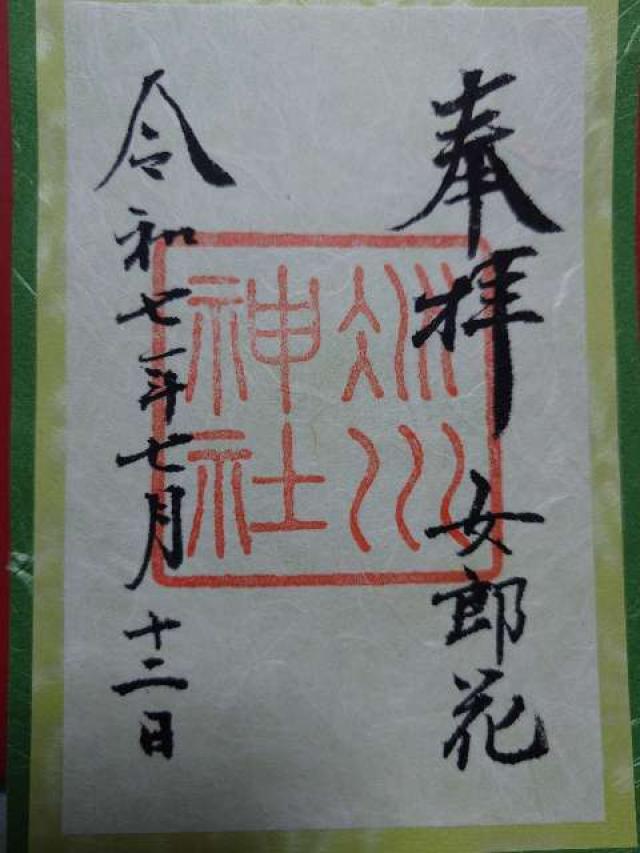 奉拝 女郎花
冰川
神社
令和七年七月十二日